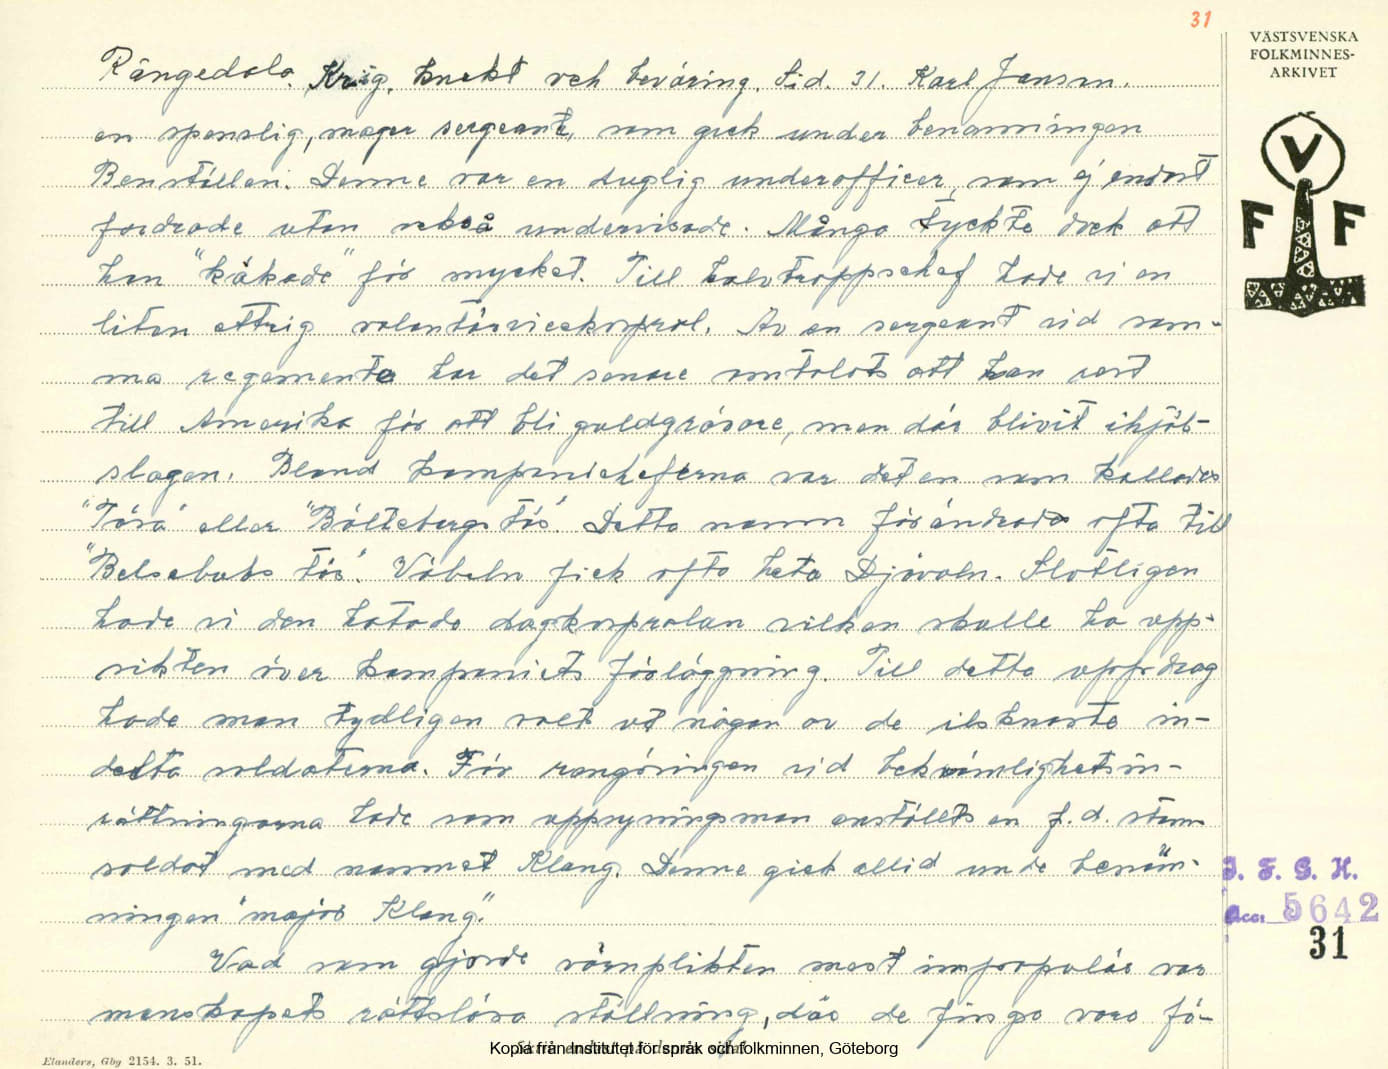 31
VÄSTSVENSKA
FOLKMINNES-
ARKIVET
V
F F
Rångedala. Krig, knekt och beväring. Sid. 31. Karl Janson.
en spenslig, mager sergeant, som gick under benämningen
Benställeri. Denne var en duglig underofficer, som ej endast
fordrade utan också undervisade. Många tyckte dock att
han "kåkade" för mycket. Till halvtroppschef hade vi en
liten ettrig volontärvicekorpral. Av en sergeant vid sam-
ma regemente har det senare omtalats att han rest
till Amerika för att bli guldgrävare, men där blivit ihjäl-
slagen. Bland kompanicheferna var det en som kallades
"Töra" eller "Bältebergs tös". Detta namn förändrades ofta till
"Belsebubs tös". Väbeln fick ofta heta Djävoln. Slutligen
hade vi den hatade dagkorpralen vilken skulle ha upp-
sikten över kompaniets förläggning. Till detta uppdrag
hade man tydligen valt ut någon av de ilsknaste in-
delta soldaterna. För rengöringen vid bekvämlighetsin-
rättningarna hade som uppsyningsman anställts en f.d. stam
soldat med namnet Klang. Denne gick alltid unde benäm-
ningen "major Klang".
Vad som gjorde värnplikten mest impopulär var
manskapets rättslösa ställning, där de fingo vara fö-
I. F. G. H.
Acc: 5642
31
Elanders, Gbg 2154. 3. 51.
Kopia från Institutet för språk och folkminnen, Göteborg